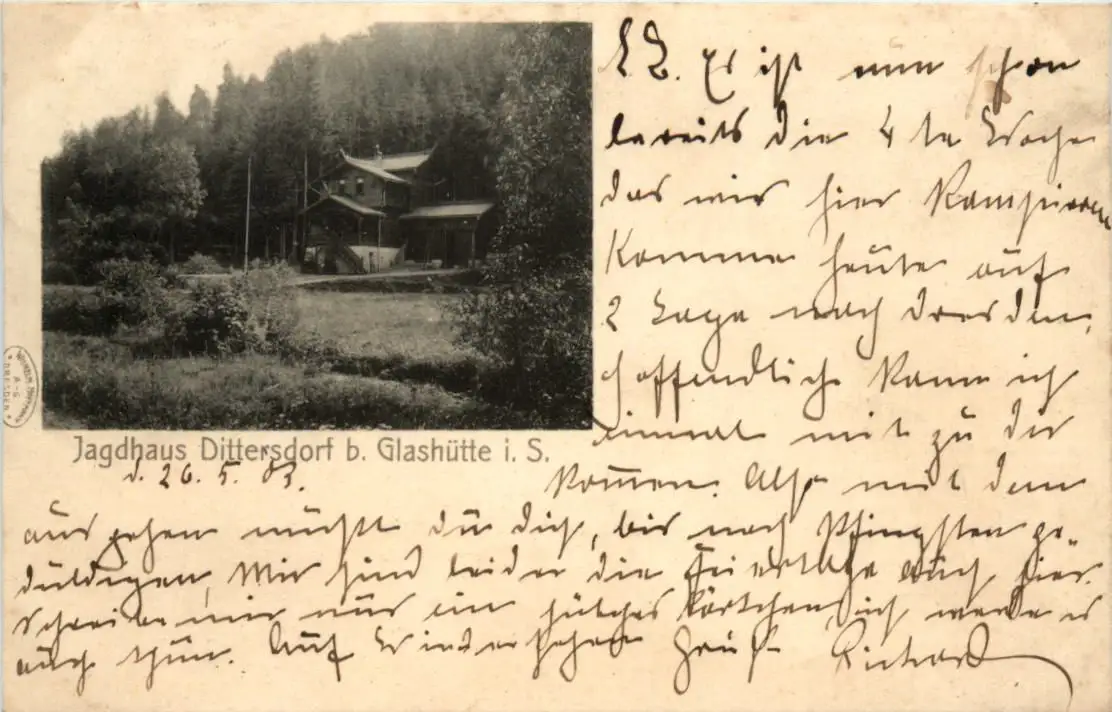 L. L. Es ist nun schon
bereits die 4 te Woche
das wir hier kampieren
komme heute auf
2 Tage nach Dresden,
hoffendlich kann ich
einmal mit zu dir
kommen. Also mit dem
WILHELM HOFFMANN
A-G
DRESDEN
Jagdhaus Dittersdorf b. Glashütte i. S.
d. 26. 5. 03.
ausgehen müßt du dich, bis nach Pfingsten ge-
duldigen, Wir sind leider die Feiertage auch hier.
Schreibe mir nur ein hübsches Kärtchen, ich werde es
auch thun. Auf Wiedersehen Gruß Richard